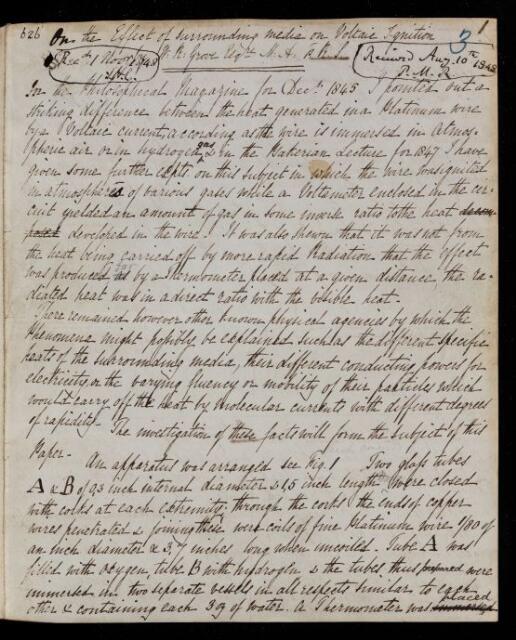 626
1
On the Effect of surrounding media on Voltaic Ignition
3
W. R. Grove Esqre M. A. F.R.S.
Received Aug. 10th 1848
P. M. R
In the Philosophical Magazine for Decr. 1845 I pointed out a
striking difference between the heat generated in a Platinum wire
by a Voltaic current, according as the wire is immersed in Atmos-
pheric air or in hydrogen gas & in the Bakerian Lecture for 1847 I have
given some further expts on this subject in which the wire was ignited
in atmospheres of various gases while a Voltameter enclosed in the cir-
cuit yielded an amount of gas in some inverse ratio to the heat
developed in the wire. It was also shewn that it was not from
the heat being carried off by more rapid Radiation that the effect
was produced as by a thermometer placed at a given distance the ra-
diated heat was in a direct ratio with the visible heat.
There remained however other known physical agencies by which the
Phenomena might possibly be explained such as the different specific
heats of the surrounding media, their different conducting powers for
electricity, or the varying fluency or mobility of their particles which
would carry off the heat by molecular currents with different degrees
of rapidity. The investigation of these facts will form the subject of this
Paper.
An apparatus was arranged see Fig. 1 Two glass tubes
A & B of 0,3 inch internal diameter & 1,5 inch length were closed
with corks at each extremity; through the corks the ends of copper
wires penetrated & joining these were coils of fine Platinum wire 1/80 of
an inch diameter & 3,7 inches long when uncoiled. Tube A was
filled with oxygen, tube B with hydrogen & the tubes thus prepared were
immersed in two separate vessels in all respects similar to each
other & containing each 3 oz of water. A Thermometer was placed immersed